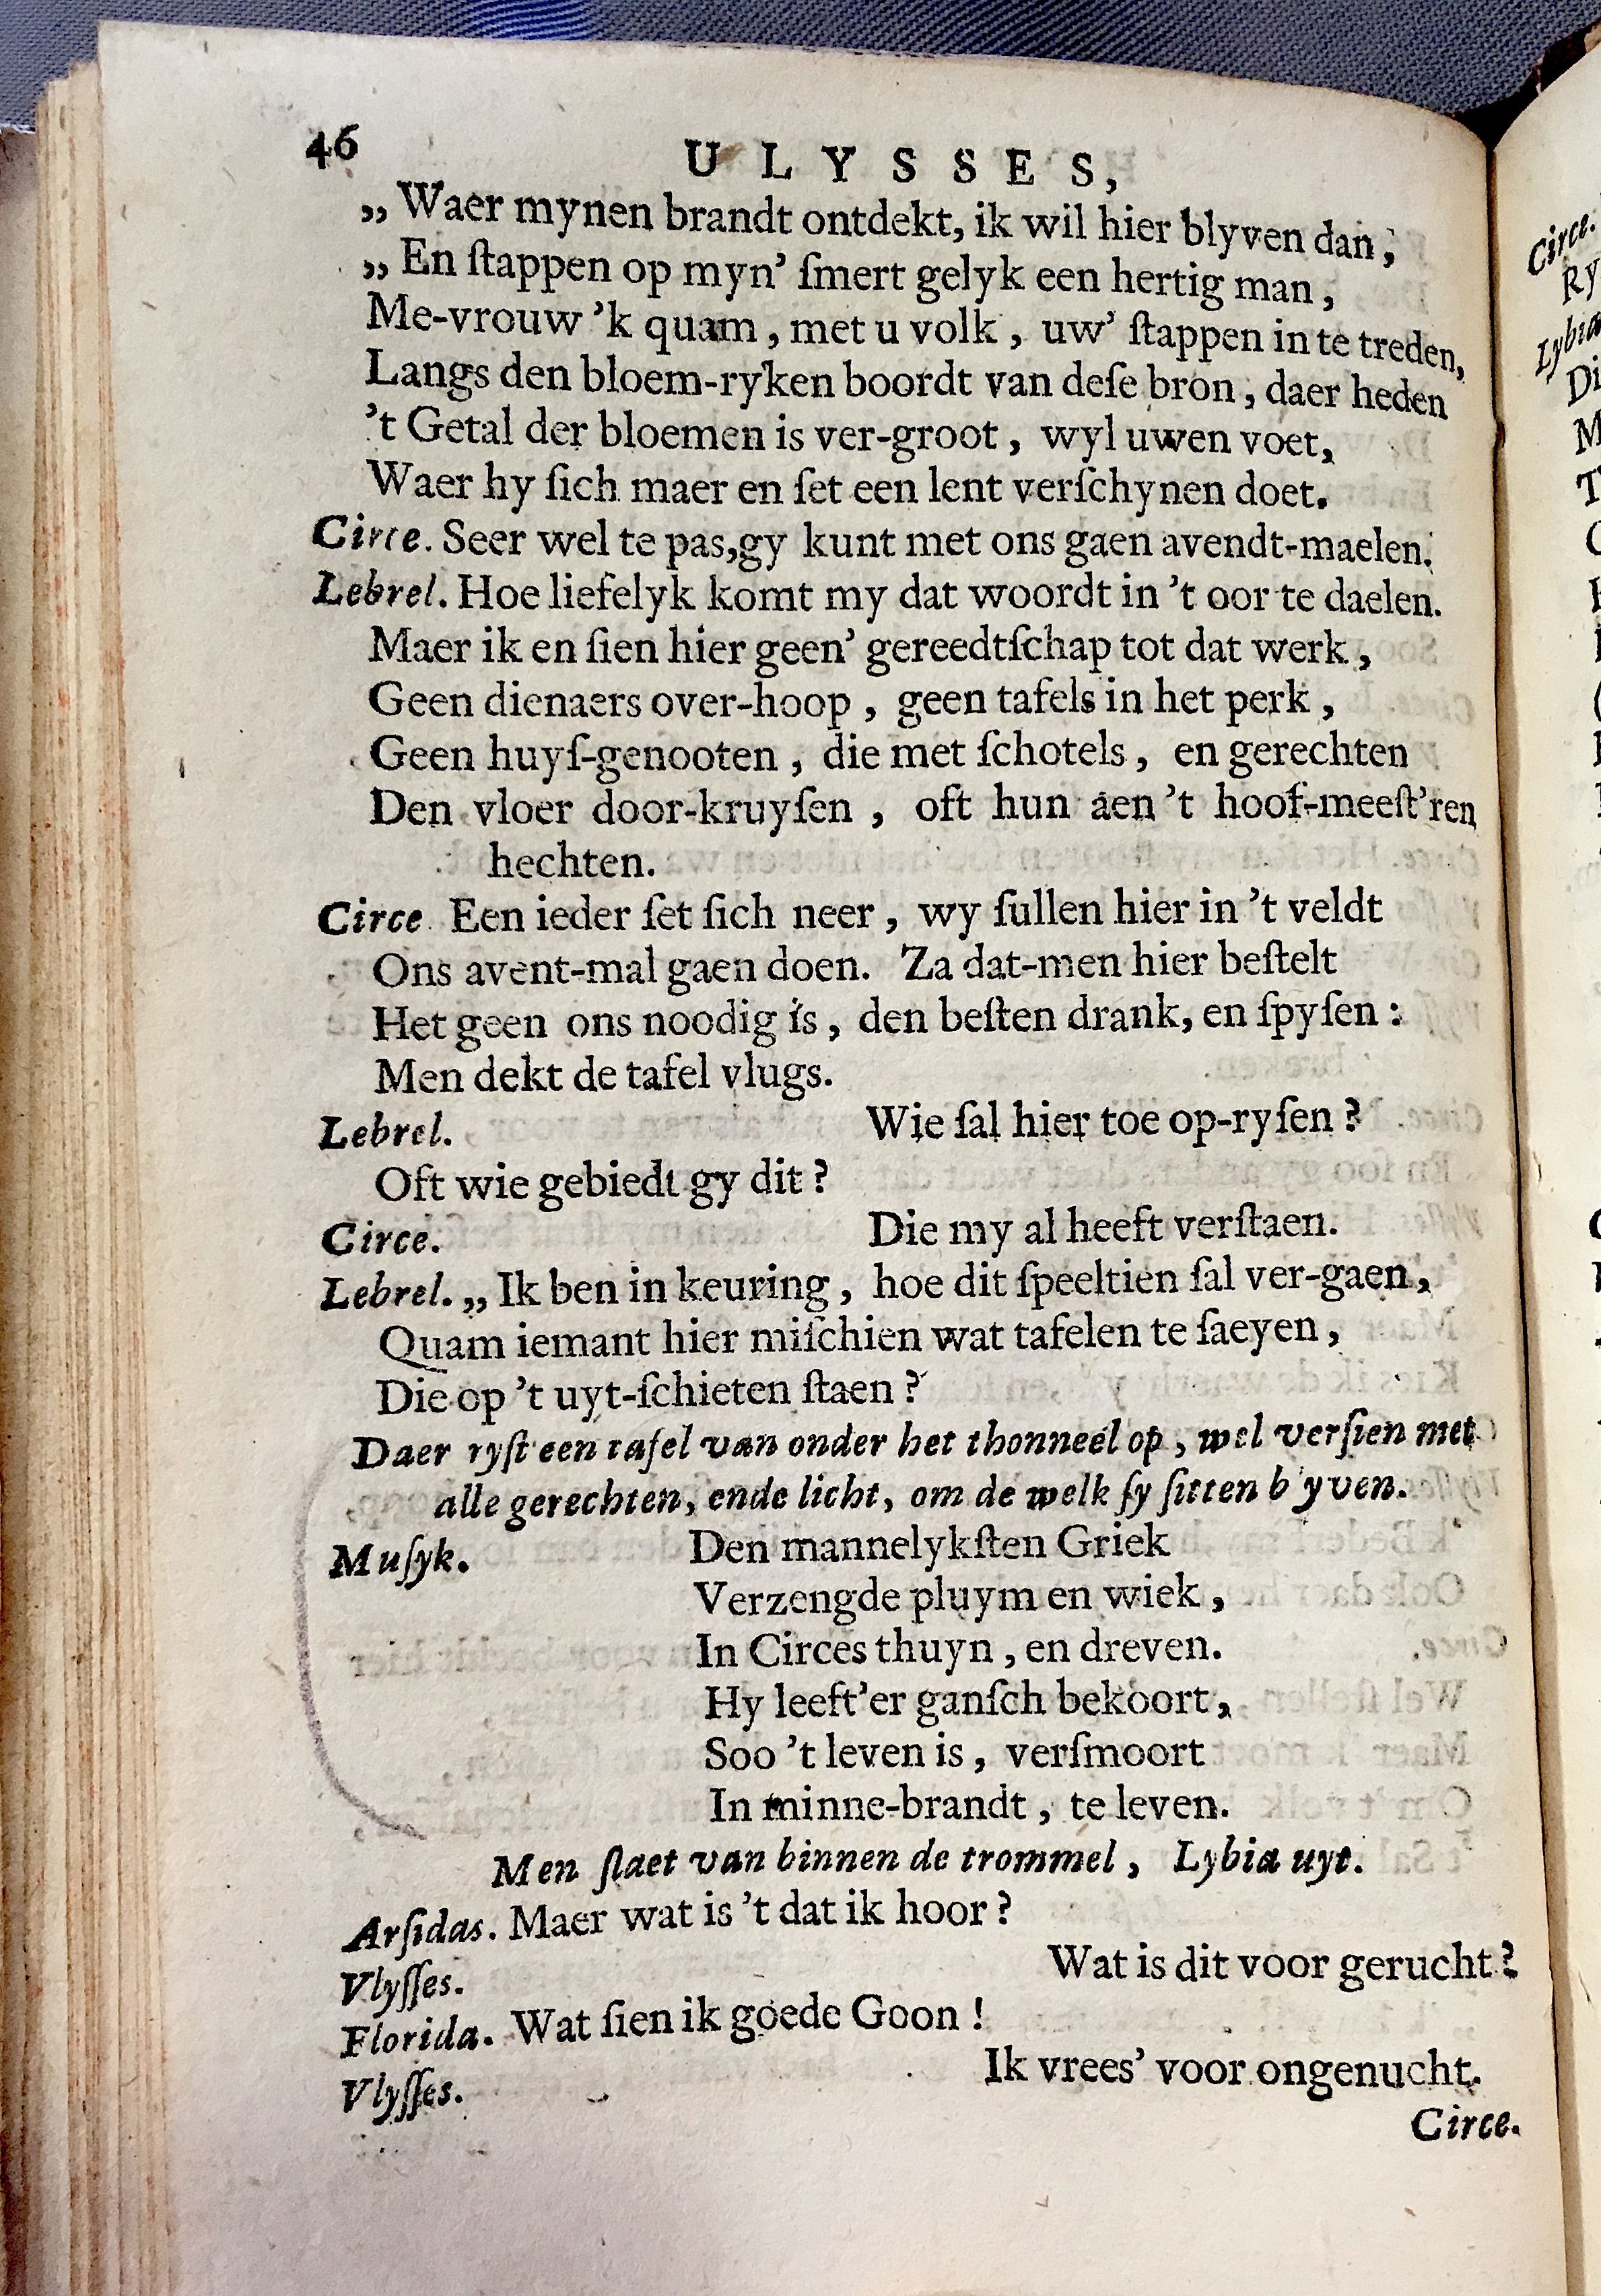 46
ULYSSES,
„ Waer mynen brandt ontdekt, ik wil hier blyven dan,
„ En ſtappen op myn’ ſmert gelyk een hertig man,
Me-vrouw ’k quam, met u volk, uw’ ſtappen in te treden,
Langs den bloem-ryken boordt van deſe bron, daer heden
’t Getal der bloemen is ver-groot, wyl uwen voet,
Waer hy ſich maer en ſet een lent verſchynen doet.
Circe. Seer wel te pas,gy kunt met ons gaen avendt-maelen.
Lebrel. Hoe liefelyk komt my dat woordt in ’t oor te daelen.
Maer ik en ſien hier geen’ gereedtſchap tot dat werk,
Geen dienaers over-hoop, geen tafels in het perk,
Geen huyſ-genooten, die met ſchotels, en gerechten
Den vloer door-kruyſen, oft hun aen ’t hoof-meeſt’ren
hechten.
Circe. Een ieder ſet ſich neer, wy ſullen hier in ’t veldt
Ons avent-mal gaen doen. Za dat-men hier beſtelt
Het geen ons noodig is, den beſten drank, en ſpyſen:
Men dekt de tafel vlugs.
Lebrel. Wie ſal hier toe op-ryſen?
Oft wie gebiedt gy dit?
Circe. Die my al heeft verſtaen.
Lebrel. „ Ik ben in keuring, hoe dit ſpeeltien ſal ver-gaen,
Quam iemant hier miſchien wat tafelen te ſaeyen,
Die op ’t uyt-ſchieten ſtaen?
Daer ryſt een tafel van onder het thonneel op, wel verſien met
alle gerechten, ende licht, om de welk ſy ſitten b yven.
Muſyk. Den mannelykſten Griek
Verzengde pluym en wiek,
In Circes thuyn, en dreven.
Hy leeft’er ganſch bekoort,
Soo ’t leven is, verſmoort
In minne-brandt, te leven.
Men ſlaet van binnen de trommel, Lybia uyt.
Arſidas. Maer wat is ’t dat ik hoor?
Vlyſſes. Wat is dit voor gerucht?
Florida. Wat ſien ik goede Goon!
Vlyſſes. Ik vrees’ voor ongenucht.
Circe.
Circe.
Ry
Lybia
Di
M